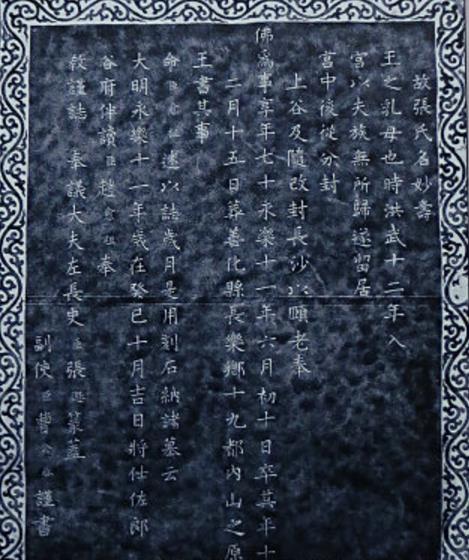 故張氏名妙壽
王之乳母也時洪武十二年入
宮以夫族無所歸遂留居
宮中後從分封
上谷及隨改封長沙以頤老奉
佛為事享年七十永樂十一年六月初十日卒其年十
二月十五日葬善化縣長樂鄉十九都內山之原
王書其事
命臣述以誌歲月是用刻石納諸墓云
大明永樂十一年歲在癸巳十月吉日將仕佐郎
谷府伴讀臣趙奉
教謹誌 奉議大夫左長史臣張篆蓋
副使臣謹書